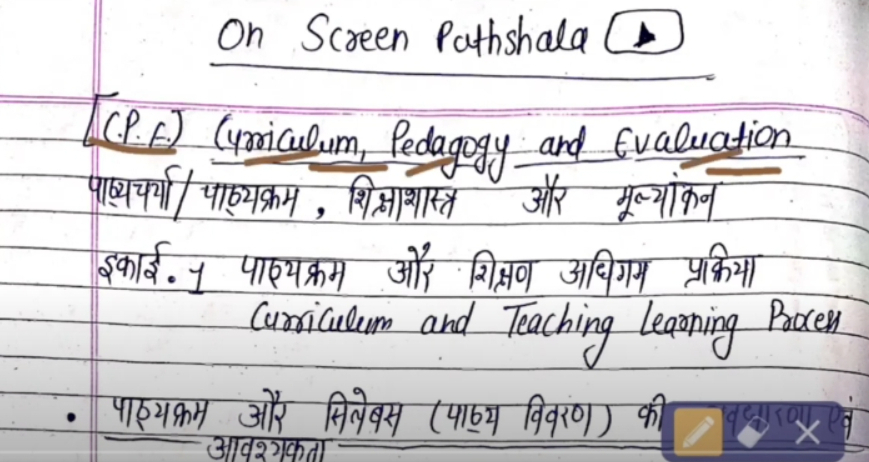 On Screen Pathshala
(C.P.E.) Curriculum, Pedagogy and Evaluation
पाठ्यचर्या/पाठ्यक्रम, शिक्षाशास्त्र और मूल्यांकन
इकाई. 1 पाठ्यक्रम और शिक्षण अधिगम प्रक्रिया
Curriculum and Teaching Learning Process
• पाठ्यक्रम और सिलेबस (पाठ्य विवरण) की एवं
आवश्यकता